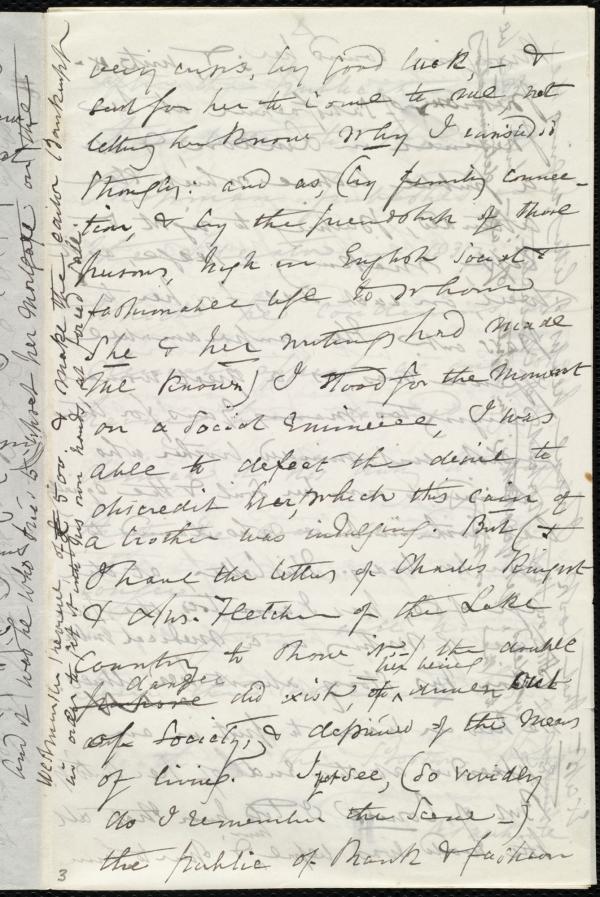 very crisis, by good luck, - &
sent for her to come to me, not
letting her know why I wished it
strongly: and as, (by family connec-
tion, & by the friendship of those
persons, high in English Society &
fashionable life to whom
She & her writings had made
me known) I stood for the moment
on a social eminence, I was
able to defeat the desire to
discredit her, which this cain of
a brother was indulging. But (&
I have the letters of Charles
& Mrs. Fletcher of the Lake
Country to shone it) the double
danger did exist, of her being driven out
of Society, & deprived of the means
of living. I yet see, (so vividly
do I remember the scene -)
the public of Rank & fashion
3
and it was he who tried to upset her mortgage on the
Westminster Review of £500. & make the editor Bankrupt
in order to get it into his own hands, at forced sale.